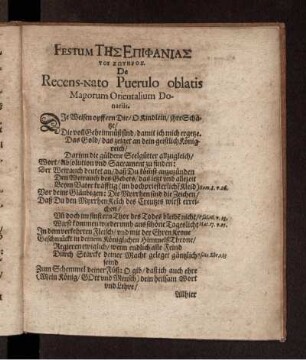 FESTUM ΤΗΣ ΕΠΙΦΑΝΙΑΣ
ΤΟΥ ΣΩΤΗΡΟΣ.
De
Recens-nato Puerulo oblatis
Magorum Orientalium Do-
nariis.
DIe Weisen opffern Dir/ O Kindlein/ ihre Schä-
tze/
Die voll Geheimnüß sind/ damit ich mich ergetze.
Das Gold/ das zeiget an dein geistlich König-
reich/
Darinn die güldene Seelgüter allzugleich/
Wort/ Absolution und Sacrament zu finden:
Der Weirauch deutet an/ daß Du könnst anzünden
Den Weirauch des Gebets/ das für uns allzeit
Beym Vater kräfftig/ im hochpriesterlich Kleid
Vor deine Gläubigen: Die Myrrhen sind die Zeichen/
Daß Du den Myrrhen Kelch des Creutzes wirst errei-
chen/
Und doch im finstern Thor des Todes bleibst nicht/
Wirst kommen wiederumb ans schöne Tageslicht
In dem verklärten Fleisch/ und mit der Ehren Krone
Geschmückt in deinem Königlichen Himmels-Throne/
Regieren ewiglich/ wenn endlich alle Feind
Durch Stärcke deiner Macht geleget gäntzlich
seind
Zum Schemmel deiner Füß: O gib/ daß ich auch ehre
(Mein König/ GOtt und Mensch) dein heilsam Wort
und Lehre/
Allhier